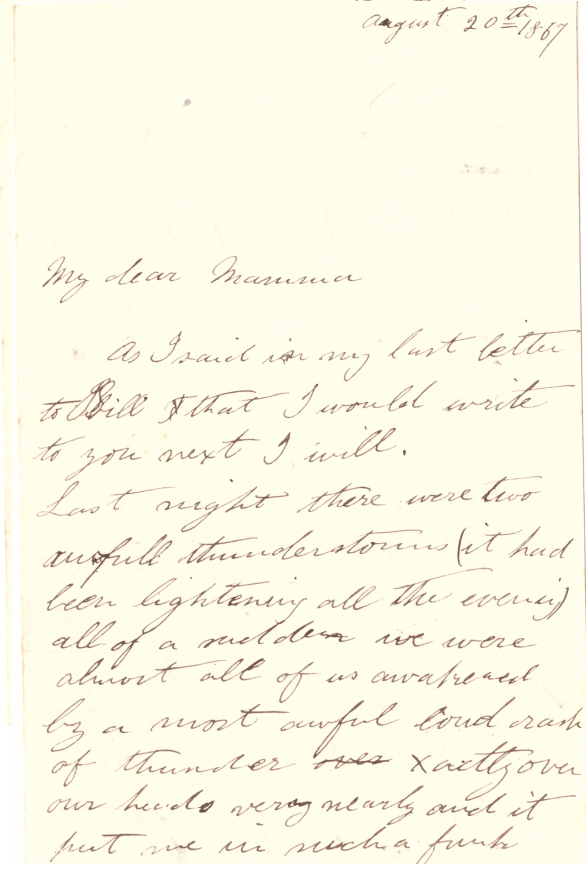 August 20th 1867
My dear Mamma
As I said in my last letter
to Bill that I would write
to you next I will.
Last night there were two
awfull thunderstorms (it had
been lightening all the evening)
all of a sudden we were
almost all of us awakened
by a most awful loud crash
of thunder over xactly over
our heads very nearly and it
put me in such a funk